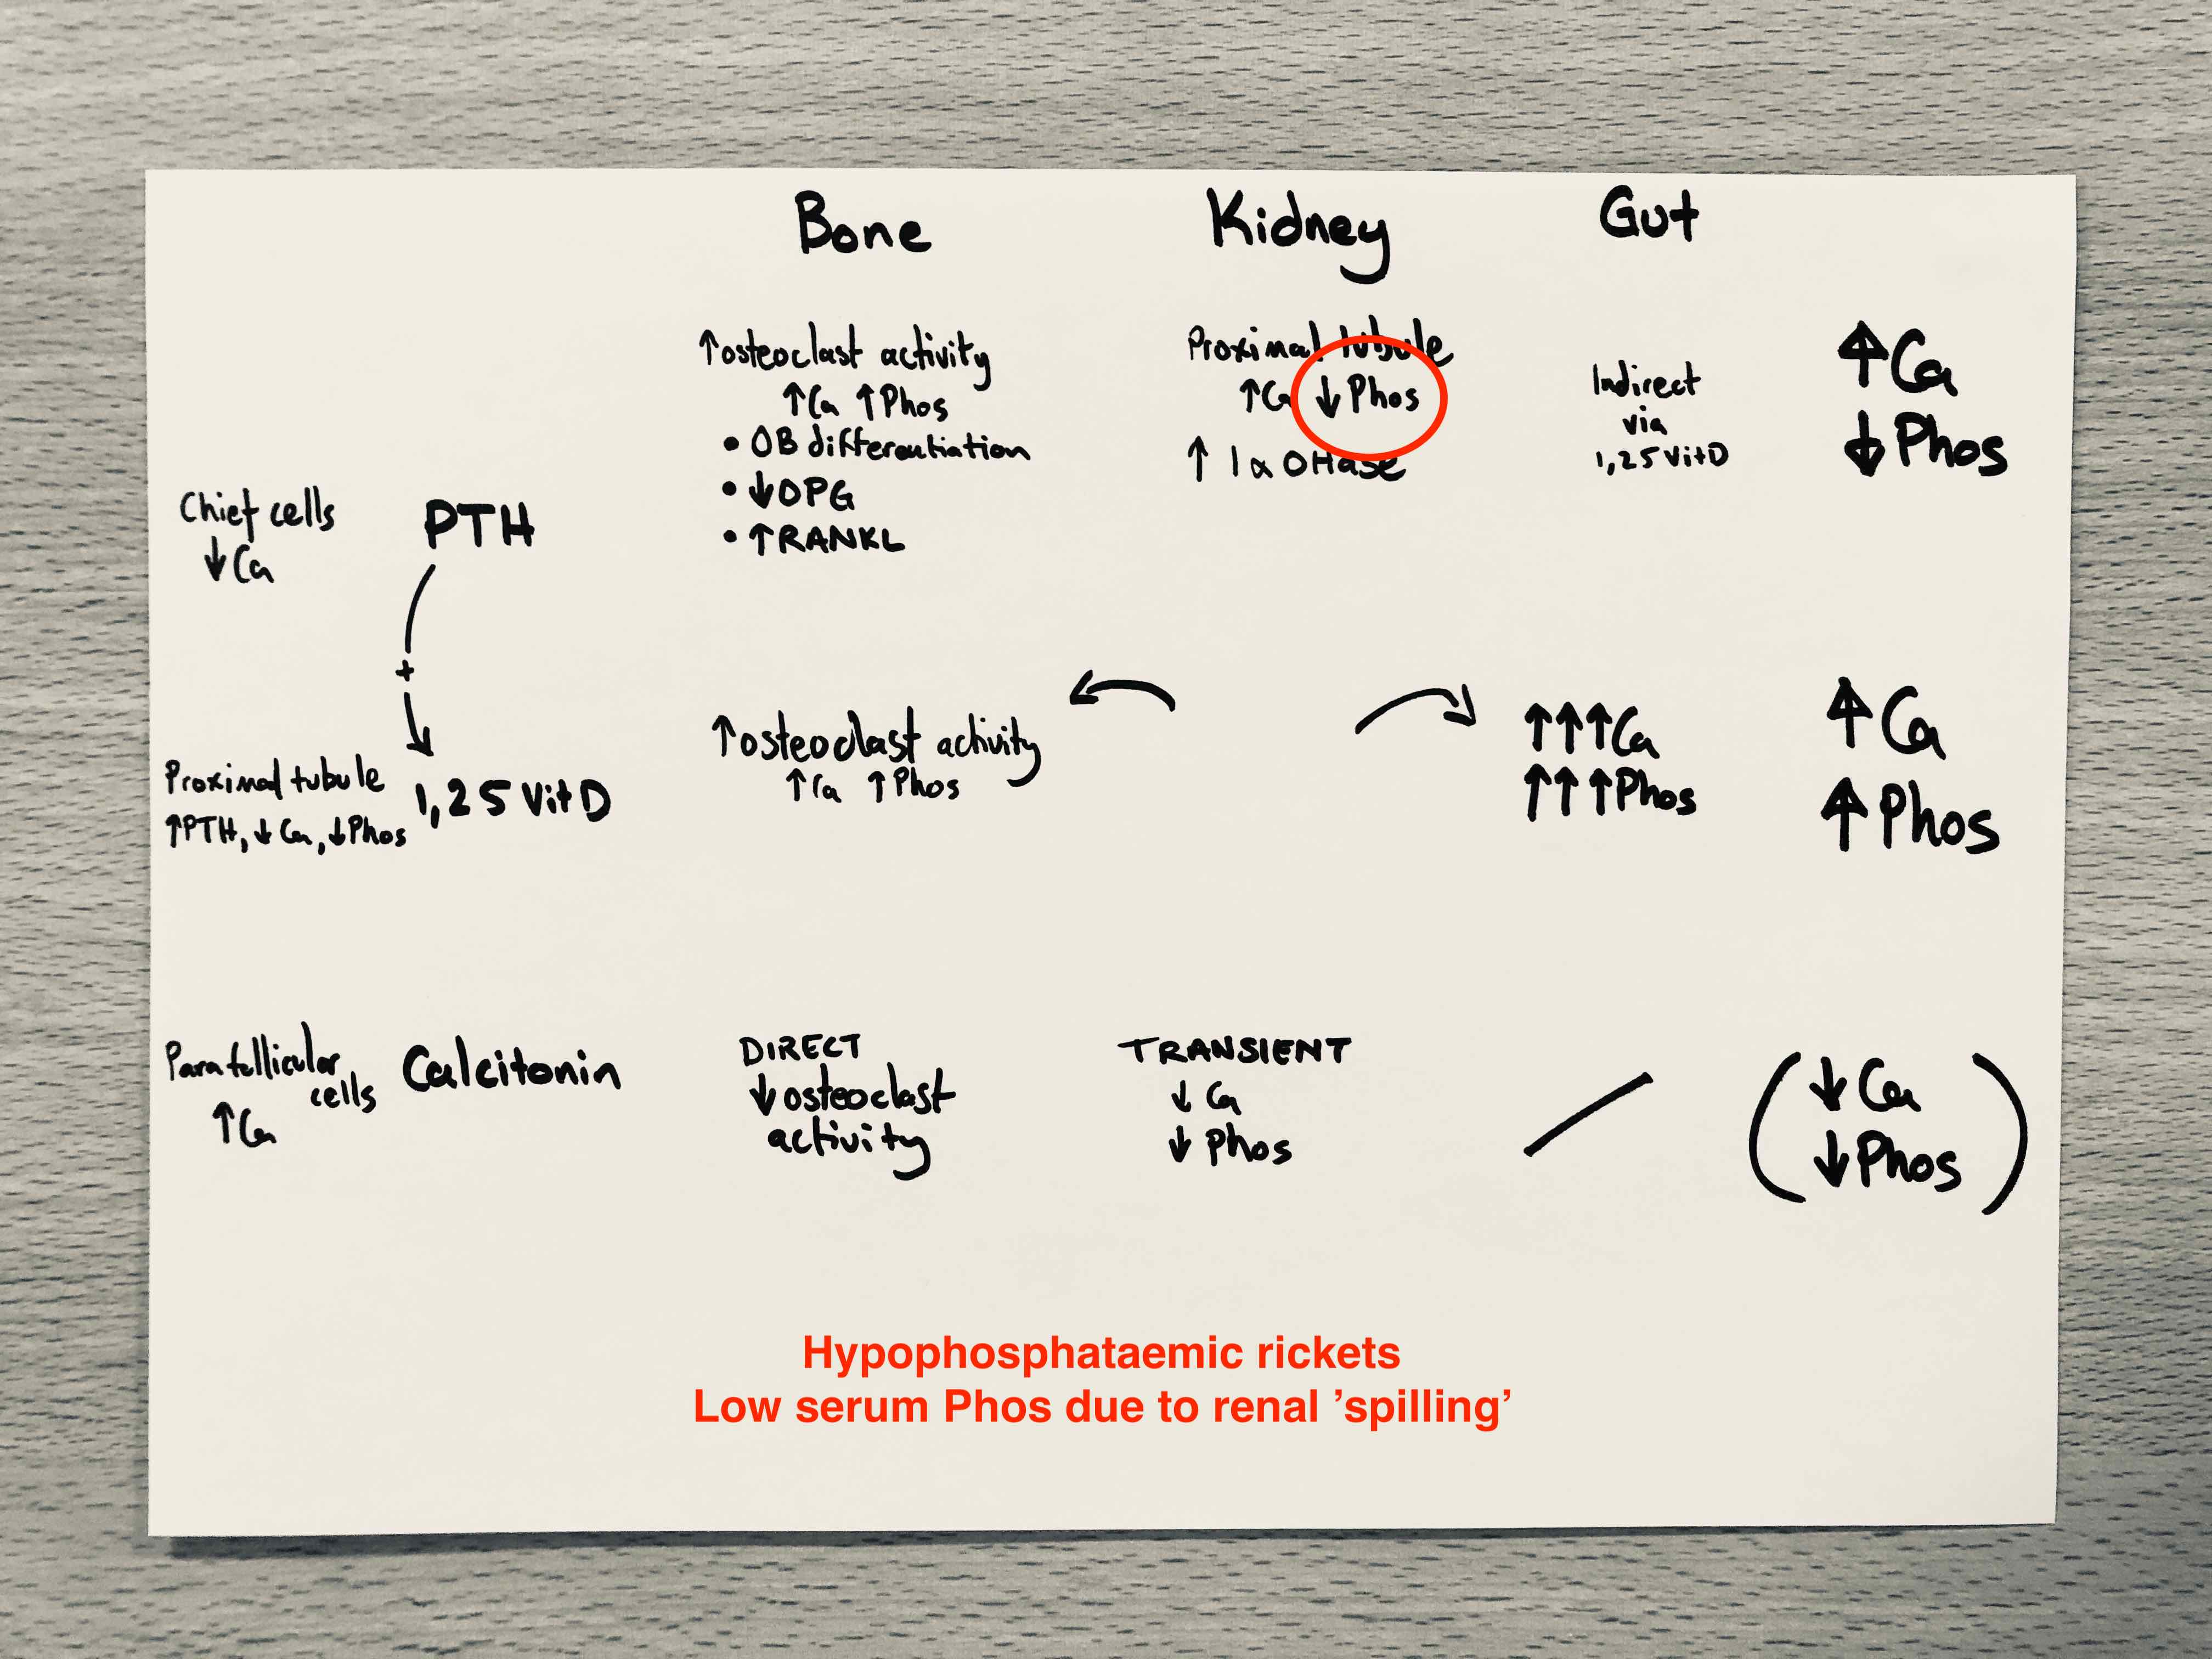 Bone
Kidney
Gut
Chief cells
↓Ca
PTH
↑osteoclast activity
↑Ca ↑Phos
• OB differentiation
• ↓OPG
• ↑RANKL
Proximal tubule
↑Ca ↓Phos
↑ 1α OHase
Indirect
via
1,25 VitD
↑Ca
↓Phos
+
Proximal tubule
↑PTH, ↓Ca, ↓Phos
1,25 VitD
↑osteoclast activity
↑Ca ↑Phos
↑↑↑Ca
↑↑↑Phos
↑Ca
↑Phos
Parafollicular
cells
↑Ca
Calcitonin
DIRECT
↓osteoclast
activity
TRANSIENT
↓ Ca
↓ Phos
(↓Ca
↓Phos)
Hypophosphataemic rickets
Low serum Phos due to renal ’spilling’